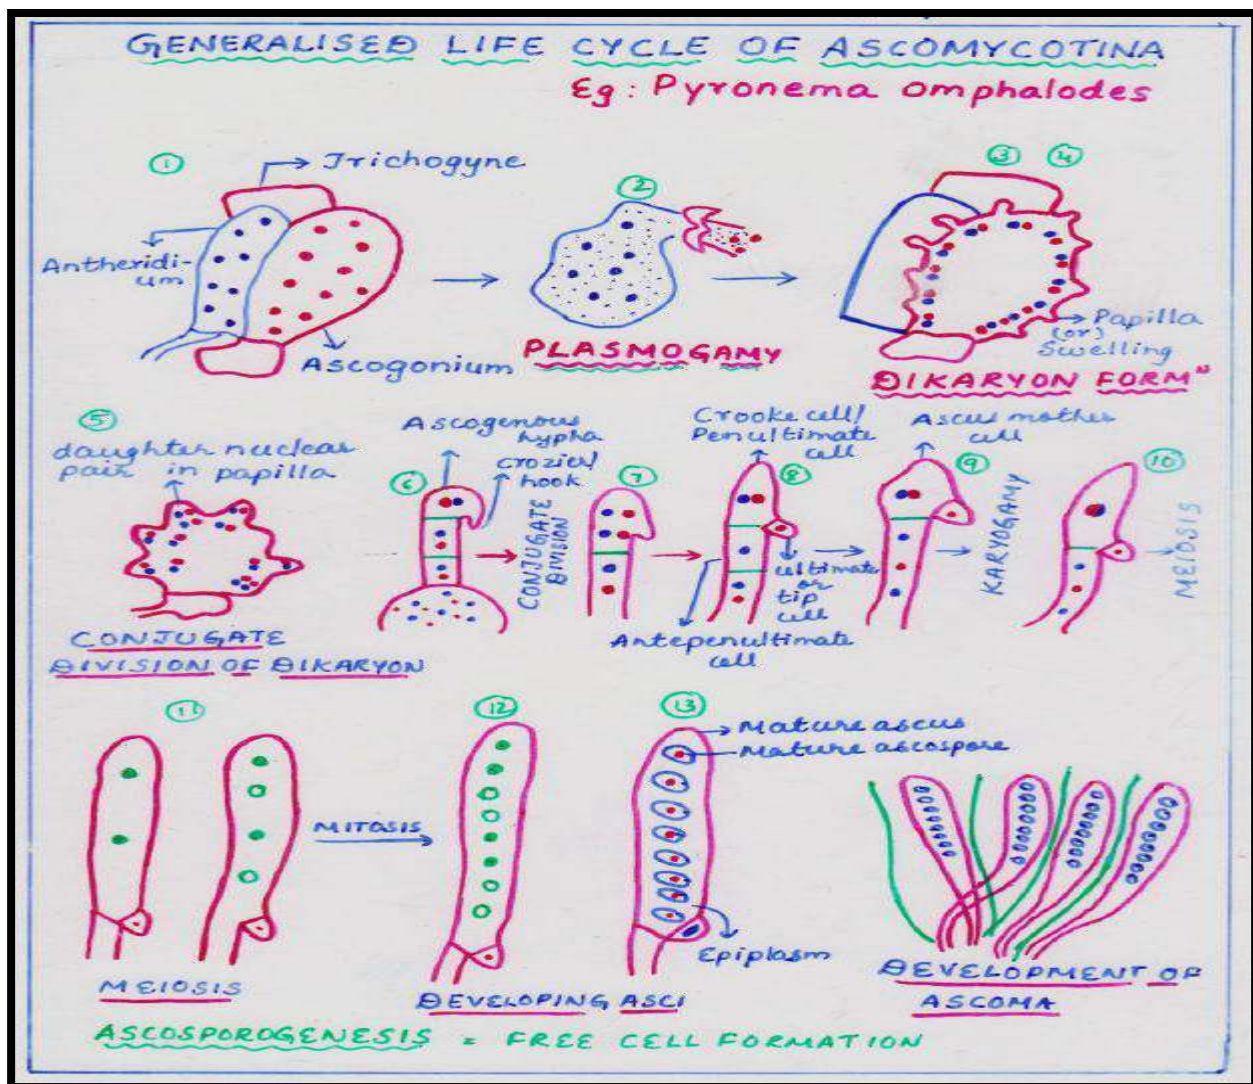 GENERALISED LIFE CYCLE OF ASCOMYCOTINA
Eg: Pyronema omphalodes
1
Trichogyne
Antheridi-
um
Ascogonium
2
PLASMOGAMY
3 4
Papilla
(or)
Swelling
DIKARYON FORMⁿ
5
daughter nuclear
pair in papilla
CONJUGATE
DIVISION OF DIKARYON
6
Ascogenous
hypha
crozier/
hook
CONJUGATE
DIVISION
7
Crooke cell/
Penultimate
cell
8
ultimate
or
tip
cell
Antepenultimate
cell
Ascus mother
cell
9
KARYOGAMY
10
MEIOSIS
11
MEIOSIS
MITOSIS
12
DEVELOPING ASCI
13
Mature ascus
Mature ascospore
Epiplasm
DEVELOPMENT OF
ASCOMA
ASCOSPOROGENESIS = FREE CELL FORMATION